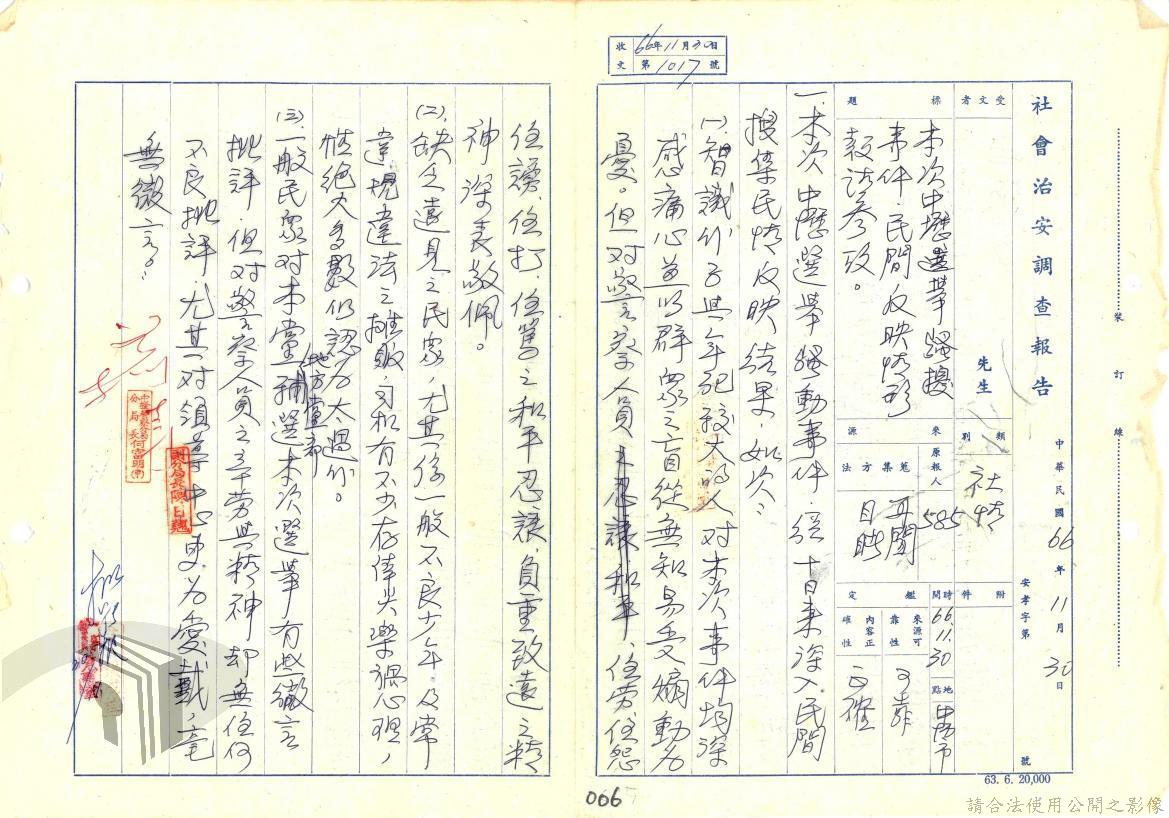 收文 66年11月30日
第1017號
社會治安調查報告
中華民國66年11月30日
安孝字第 號
受文者 先生
標題
本次中壢選舉騷擾
事件、民間反映情形
敬請參攷。
類別 社情
來源
原報人 585
蒐集方法 耳聞目睹
附件
鑑定
時間 66.11.30
地點 中壢市
來源可靠性 可靠
內容正確性 正確
一、本次中壢選舉騷動事件、經十日來深入民間
搜集民情反映結果、如次:
(一)、智識份子與年紀較大的人对本次事件均深
感痛心並以群眾之盲從無知易受煽動為
憂。但对警察人員之忍讓和平、任勞任怨
任謗、任打、任罵之和平忍讓、負重致遠之精
神深表敬佩。
(二)、缺乏遠見之民眾、尤其係一般不良少年、及常
違規違法之攤販、司机有不少存倖災樂禍心理、
惟絕大多數仍認為太過份。
(三)、一般民眾对本黨地方黨部輔選本次選舉有些微言
批評、但对警察人員之辛勞與精神却無任何
不良批評、尤其对領導中心更為愛戴、毫
無微言。
中壢警察分局
分局長何富明
副分局長陳
066
63. 6. 20,000
裝 訂 線
請合法使用公開之影像